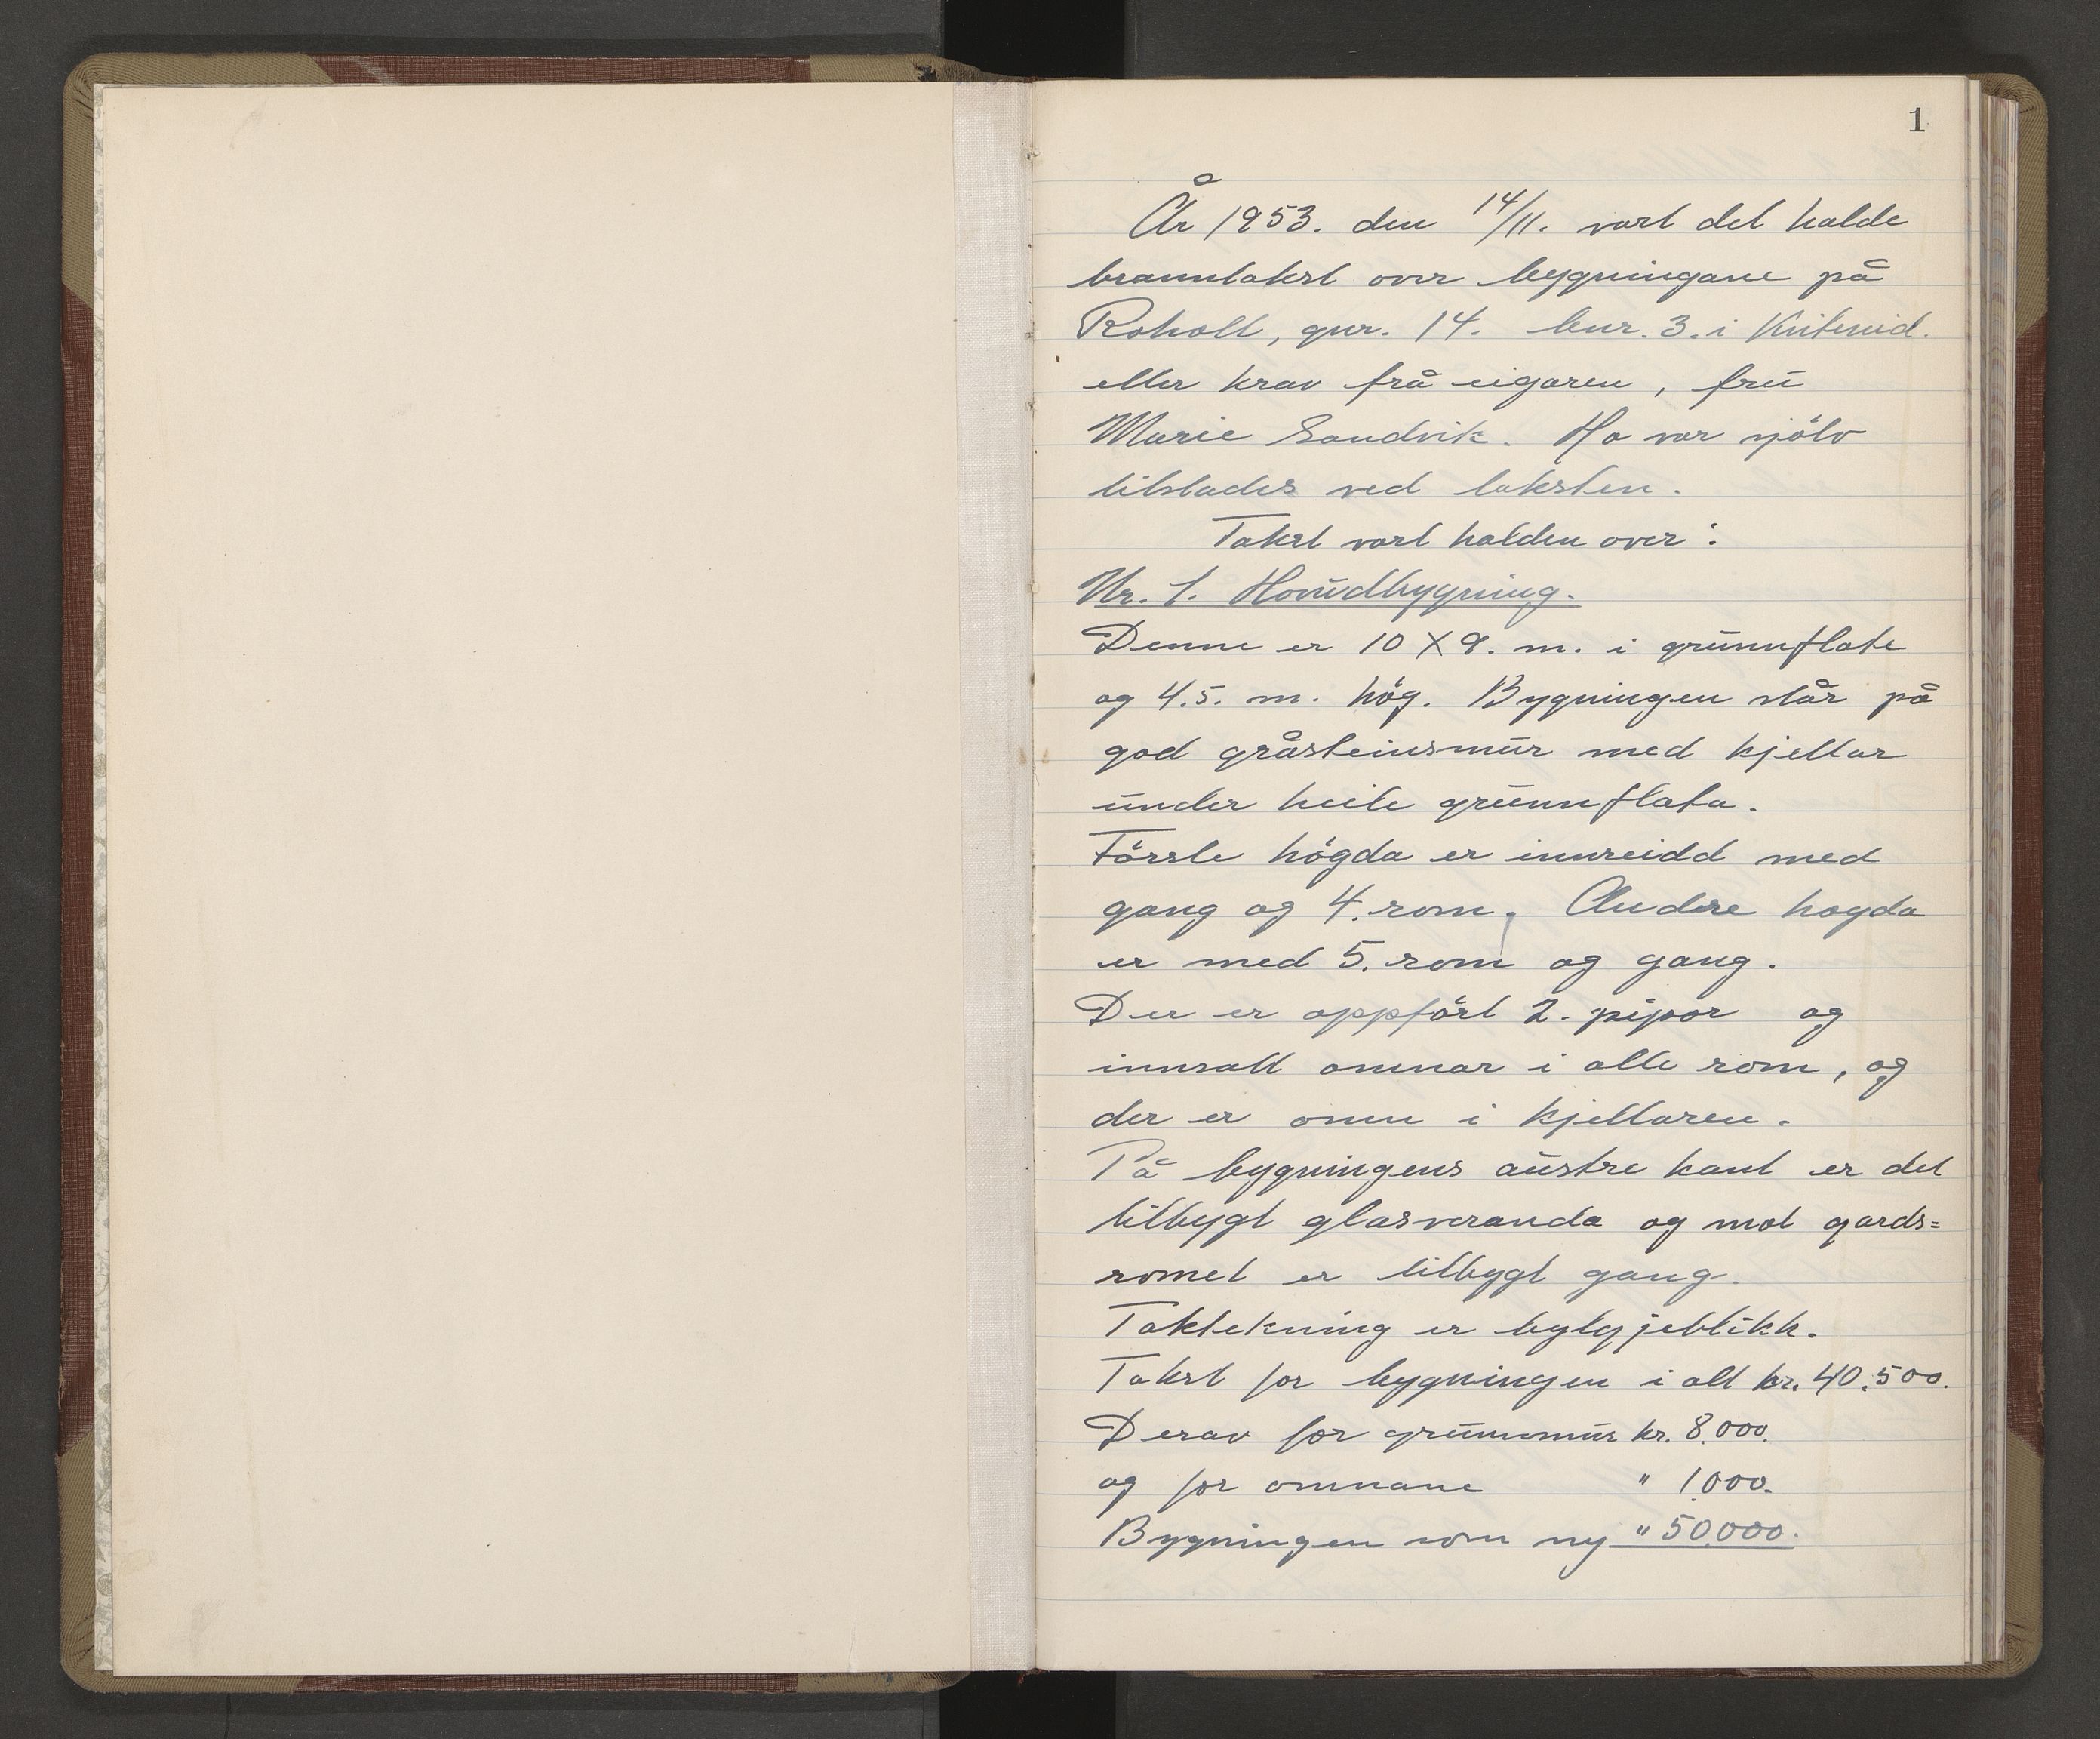 1
År 1953. den 14/11. vart det halde
branntakst over bygningane på
Roholt, gnr. 14. bnr. 3. i Kviteseid.
etter krav frå eigaren, fru
Marie Sandvik. Ho var sjölv
tilstades ved taksten.
Takst vart halden over:
Nr. 1. Hovudbygning.
Denne er 10 X 9. m. i grunnflate
og 4.5. m. hög. Bygningen står på
god gråsteinsmur med kjellar
under heile grunnflata.
Förste högda er innreidd med
gang og 4. rom. Andre hogda
er med 5. rom og gang.
Der er oppfört 2. pipor og
innsatt omnar i alle rom, og
der er omn i kjellaren.
På bygningens austre kant er det
tilbygt glasveranda og mot gards=
romet er tilbygt gang.
Taktekning er bylgjeblikk.
Takst for bygningen i alt kr. 40.500.
Derav for grunnmur kr. 8.000.
og for omnane " 1.000.
Bygningen som ny " 50.000.